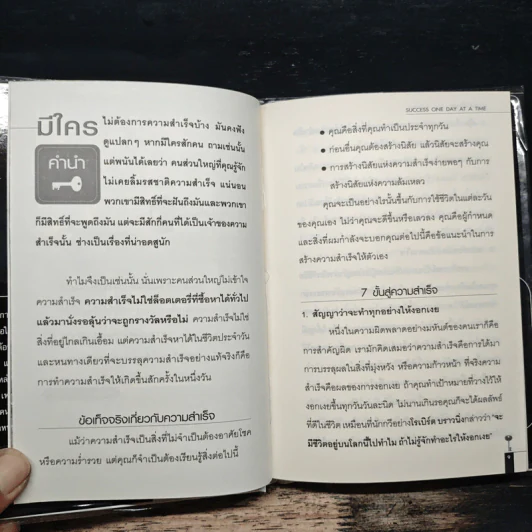 มีใคร
คำนำ
ไม่ต้องการความสำเร็จบ้าง มันคงฟัง
ดูแปลกๆ หากมีใครสักคน ถามเช่นนั้น
แต่พนันได้เลยว่า คนส่วนใหญ่ที่คุณรู้จัก
ไม่เคยลิ้มรสชาติความสำเร็จ แน่นอน
พวกเขามีสิทธิ์ที่จะฝันถึงมันและพวกเขา
ก็มีสิทธิ์ที่จะพูดถึงมัน แต่จะมีสักกี่คนที่ได้เป็นเจ้าของความ
สำเร็จนั้น ช่างเป็นเรื่องที่น่าอดสูนัก
ทำไมจึงเป็นเช่นนั้น นั่นเพราะคนส่วนใหญ่ไม่เข้าใจ
ความสำเร็จ ความสำเร็จไม่ใช่ล็อตเตอรี่ที่ซื้อหาได้ทั่วไป
แล้วมานั่งรอลุ้นว่าจะถูกรางวัลหรือไม่ ความสำเร็จไม่ใช่
สิ่งที่อยู่ไกลเกินเอื้อม แต่ความสำเร็จหาได้ในชีวิตประจำวัน
และหนทางเดียวที่จะบรรลุความสำเร็จอย่างแท้จริงก็คือ
การทำความสำเร็จให้เกิดขึ้นสักครั้งในหนึ่งวัน
ข้อเท็จจริงเกี่ยวกับความสำเร็จ
แม้ว่าความสำเร็จเป็นสิ่งที่ไม่จำเป็นต้องอาศัยโชค
หรือความร่ำรวย แต่คุณก็จำเป็นต้องเรียนรู้สิ่งต่อไปนี้
SUCCESS ONE DAY AT A TIME
● คุณคือสิ่งที่คุณทำเป็นประจำทุกวัน
● ก่อนอื่นคุณต้องสร้างนิสัย แล้วนิสัยจะสร้างคุณ
● การสร้างนิสัยแห่งความสำเร็จง่ายพอๆ กับการ
สร้างนิสัยแห่งความล้มเหลว
คุณจะเป็นอย่างไรนั้นขึ้นกับการใช้ชีวิตในแต่ละวัน
ของคุณเอง ไม่ว่าคุณจะดีขึ้นหรือเลวลง คุณคือผู้กำหนด
และสิ่งที่ผมกำลังจะบอกคุณต่อไปนี้คือข้อแนะนำในการ
สร้างความสำเร็จให้ตัวเอง
7 ขั้นสู่ความสำเร็จ
1. สัญญาว่าจะทำทุกอย่างให้งอกเงย
หนึ่งในความผิดพลาดอย่างมหันต์ของคนเราก็คือ
การสำคัญผิด เรามักคิดเสมอว่าความสำเร็จคือการได้มา
การบรรลุผลในสิ่งที่มุ่งหวัง หรือความก้าวหน้า ที่จริงความ
สำเร็จคือผลของการงอกเงย ถ้าคุณทำเป้าหมายที่วางไว้ให้
งอกเงยขึ้นทุกวันวันละนิด ไม่นานเกินรอคุณก็จะได้ผลลัพธ์
ที่ดีในชีวิต เหมือนที่นักกวีอย่างโรเบิร์ต บราวนิ่งกล่าวว่า "จะ
มีชีวิตอยู่บนโลกนี้ไปทำไม ถ้าไม่รู้จักทำอะไรให้งอกเงย"